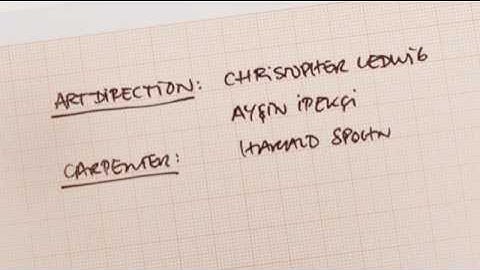 ART DIRECTION: CHRISTOPHER LEDWIG
AYÇIN İPEKÇİ
CARPENTER: HARALD SPOHN